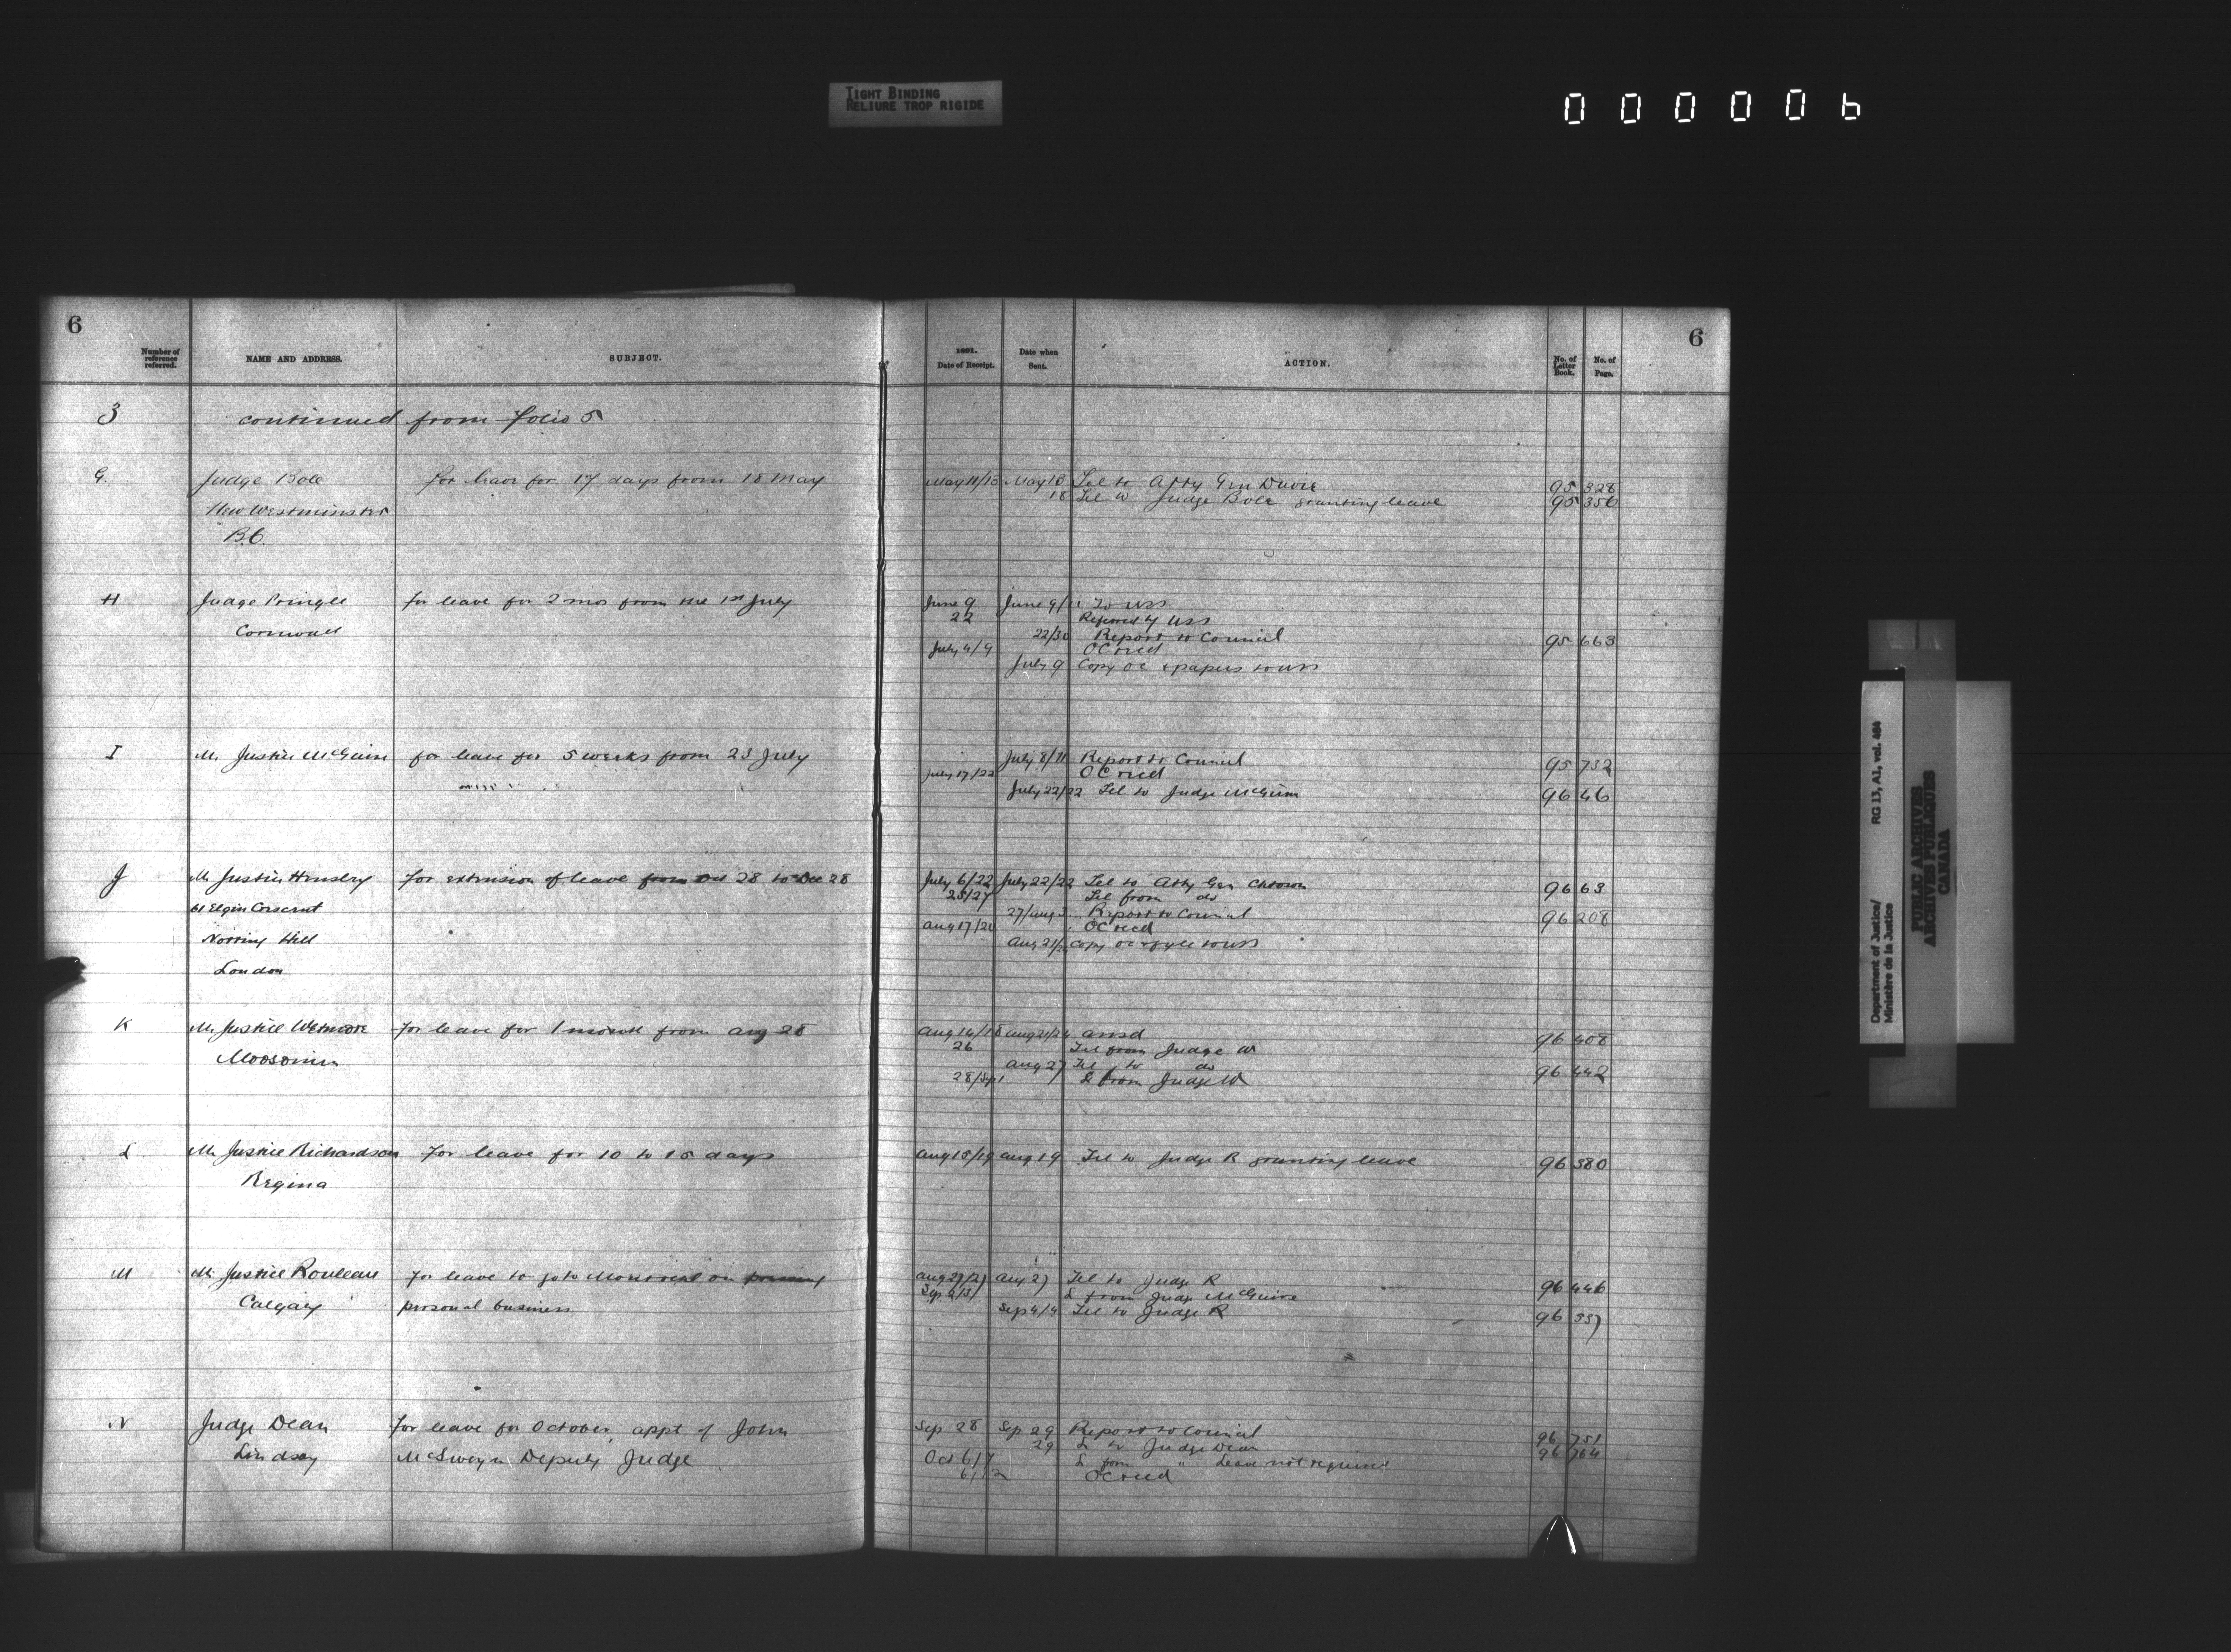 TIGHT BINDING
RELIURE TROP RIGIDE
000006
6
Number of reference referred.
NAME AND ADDRESS.
SUBJECT.
3 continued from folio 5
G. Judge Bole for leave for 17 days from 18 May
New Westminster
B.C.
H Judge Pringle for leave for 2 mos from the 1st July
Cornwall
I Mr Justice McGuire for leave for 5 weeks from 23 July
J Mr Justice Hensley for extension of leave from Oct 28 to Dec 28
61 Elgin Crescent
Notting Hill
London
K Mr Justice Wetmore for leave for 1 month from Aug 28
Moosomin
L Mr Justice Richardson For leave for 10 to 15 days
Regina
M Mr Justice Rouleau for leave to go to Montreal on
Calgary personal business
N Judge Dean for leave for October, appt of John
Lindsay McSweyn Deputy Judge
6
1891.
Date of Receipt.
Date when Sent.
ACTION.
No. of Letter Book.
No. of Page.
May 11/13 May 13 Tel to Atty Gen Davie 95 328
18 Tel to Judge Bole granting leave 95 356
June 9 June 9/11 To USS
22 Referred by USS
22/30 Report to Council 95 663
July 4/9 OC recd
July 9 Copy OC & papers to USS
July 8/11 Report to Council 95 732
July 17/22 OC recd
July 22/22 Tel to Judge McGuire 96 46
July 6/22 July 22/22 Tel to Atty Gen Chtown 96 63
25/27 Tel from do
27/Aug 3 Report to Council 96 208
Aug 17/20 OC recd
Aug 21/24 Copy OC to USS
Aug 14/18 Aug 21/24 ansd 96 408
26 Tel from Judge W
Aug 27 Tel to do 96 442
28/Sep 1 L from Judge W
Aug 15/19 Aug 19 Tel to Judge R granting leave 96 380
Aug 27/27 Aug 27 Tel to Judge R 96 446
Sep 2/3 L from Judge McGuire
Sep 4/4 Tel to Judge R 96
Sep 28 Sep 29 Report to Council 96 751
29 L to Judge Dean 96 764
Oct 6/7 L from " Leave not required
6/12 OC recd
Department of Justice/ RG 13, A1, vol. 484
Ministère de la Justice
PUBLIC ARCHIVES
ARCHIVES PUBLIQUES
CANADA